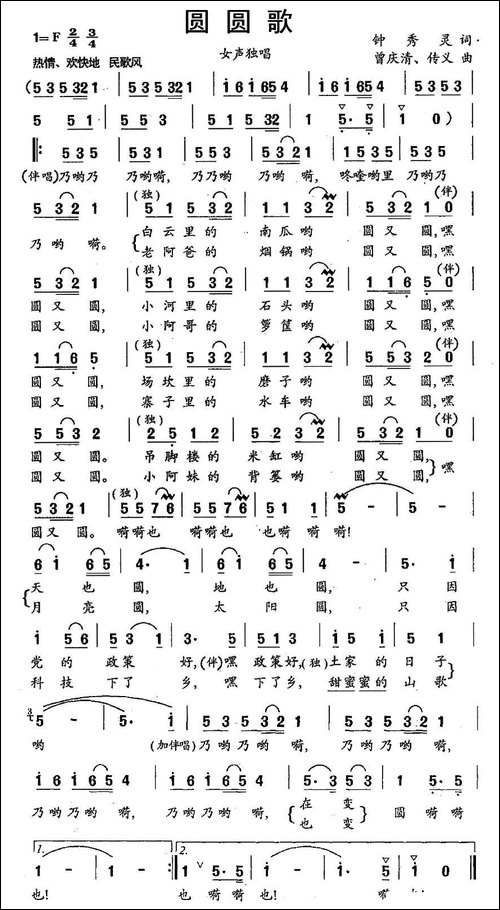 圆圆歌
1=F 2/4 3/4
女声独唱
钟秀灵 词
曾庆清、传义 曲
热情、欢快地 民歌风
(5 3 5 3 2 1 | 5 3 5 3 2 1 | i 6 i 6 5 4 | i 6 i 6 5 4 | 5 3 5 3
5 5 1 | 5 5 3 | 5 1 5 3 2 | 1 5. 5 | 1 0)
‖: 5 3 5 | 5 3 5 1 | 5 5 3 5 | 5 3 2 1 | 1 5 3 5 | 5 3 5
(伴唱)乃哟乃 乃哟嗬, 乃乃哟 乃哟嗬, 咚喹哟里 乃哟乃
(独) (伴)
5 3 2 1 | 5 1 5 3 2 | 1 1 3 2 | 5 5 3 2 | 1 0
乃哟嗬。 白云里的 南瓜哟 圆又圆,嘿
老阿爸的 烟锅哟 圆又圆,嘿
(独) (伴)
5 3 2 1 | 5 1 5 3 2 | 1 1 3 2 | 1 1 6 5 0
圆又圆, 小河里的 石头哟 圆又圆,嘿
圆又圆, 小阿哥的 箩筐哟 圆又圆,嘿
(独) (伴)
1 1 6 5 | 5 1 5 3 2 | 1 1 3 2 | 5 5 3 2 0
圆又圆, 场坎里的 磨子哟 圆又圆,嘿
圆又圆, 寨子里的 水车哟 圆又圆,嘿
(独) (伴)
5 5 3 2 | 2 5 1 2 | 5 2 3 2 | 5 5 3 2 1 0
圆又圆。 吊脚楼的 米缸哟 圆又圆, 嘿
圆又圆。 小阿妹的 背篓哟 圆又圆,
(独)
5 5 3 2 1 | 5 5 7 6 | 5 5 7 6 | 5 1 1 | 5 - | 5 -
圆又圆。 嗬嗬也 嗬嗬也 也嗬嗬嗬!
6 i i 6 5 | 4. 1 | 6 i i 6 5 | 4 - | 5. i
天也圆, 地也圆, 只因
月亮圆, 太阳圆, 只因
i 5 6 | 5 3 1 | 3. 5 | 5 5 3 5 1 | i 5 i | 5 5
党的政策 好,(伴)嘿 政策好,(独)土家的日子
科技下了 乡, 嘿 下了乡, 甜蜜蜜的山歌
5 - | 5. i | 5 3 5 5 3 2 1 | 5 3 5 5 3 2 1
哟 (加伴唱)乃哟乃哟嗬, 乃哟乃哟嗬,
i 6 i 6 5 4 | i 6 i 6 5 4 | 5. 3 5 3 | 1 5. 5
乃哟乃哟嗬, 乃哟乃哟嗬, 在变 圆嗬嗬
也变
1. 2.
1 - | 1 - :‖ 1 5. 5 | 1 - | 1 5 | i 0 ‖
也! 也嗬嗬也!